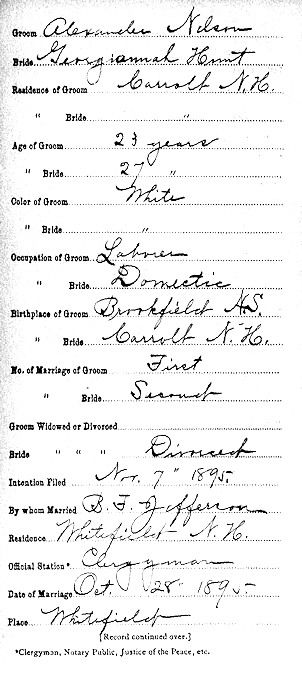 Groom Alexander Nelson
Bride Georgiannah Hunt
Residence of Groom Carroll N.H.
" Bride "
Age of Groom 23 years
" Bride 27 "
Color of Groom White
" Bride "
Occupation of Groom Laborer
" Bride Domectic
Birthplace of Groom Brookfield N.S.
" Bride Carroll N.H.
No. of Marriage of Groom First
" Bride Second
Groom Widowed or Divorced
Bride " " " Divorced
Intention Filed Nov. 7" 1895.
By whom Married B. F. Jefferson
Residence Whitefield N.H.
Official Station* Clergyman
Date of Marriage Oct. 28" 1895.
Place Whitefield
[Record continued over.]
*Clergyman, Notary Public, Justice of the Peace, etc.